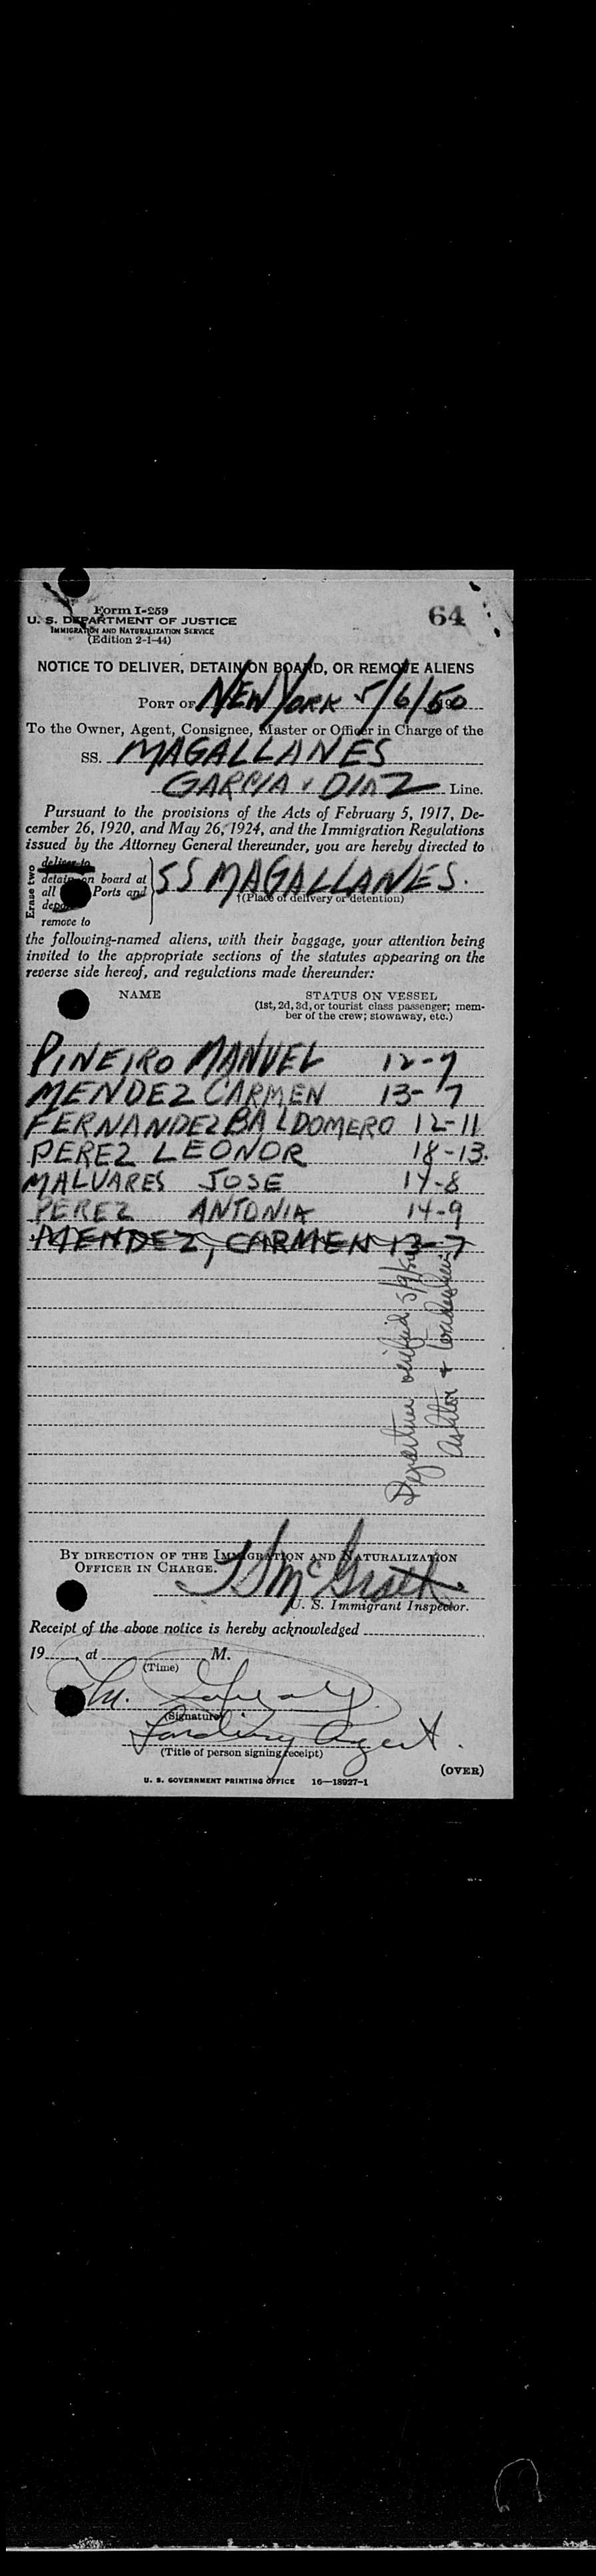 Form I-259
64
U. S. DEPARTMENT OF JUSTICE
IMMIGRATION AND NATURALIZATION SERVICE
(Edition 2-1-44)
NOTICE TO DELIVER, DETAIN ON BOARD, OR REMOVE ALIENS
PORT OF NEW YORK 5/6/50 19
To the Owner, Agent, Consignee, Master or Officer in Charge of the
SS. MAGALLANES
GARCIA Y DIAZ Line.
Pursuant to the provisions of the Acts of February 5, 1917, De-
cember 26, 1920, and May 26, 1924, and the Immigration Regulations
issued by the Attorney General thereunder, you are hereby directed to
Erase two
deliver to
detain on board at
all Ports and
remove to
SS MAGALLANES.
†(Place of delivery or detention)
the following-named aliens, with their baggage, your attention being
invited to the appropriate sections of the statutes appearing on the
reverse side hereof, and regulations made thereunder:
NAME
STATUS ON VESSEL
(1st, 2d, 3d, or tourist class passenger; mem-
ber of the crew; stowaway, etc.)
PINEIRO MANUEL 12-7
MENDEZ CARMEN 13-7
FERNANDEZ BALDOMERO 12-11
PEREZ LEONOR 18-13.
MALVARES JOSE 14-8
PEREZ ANTONIA 14-9
MENDEZ, CARMEN 13-7
Departure verified 5/9/50
BY DIRECTION OF THE IMMIGRATION AND NATURALIZATION
OFFICER IN CHARGE.
U. S. Immigrant Inspector.
Receipt of the above notice is hereby acknowledged
19 , at M.
(Time)
M.
(Signature)
Landing Agent.
(Title of person signing receipt)
(OVER)
U. S. GOVERNMENT PRINTING OFFICE 16—18927-1